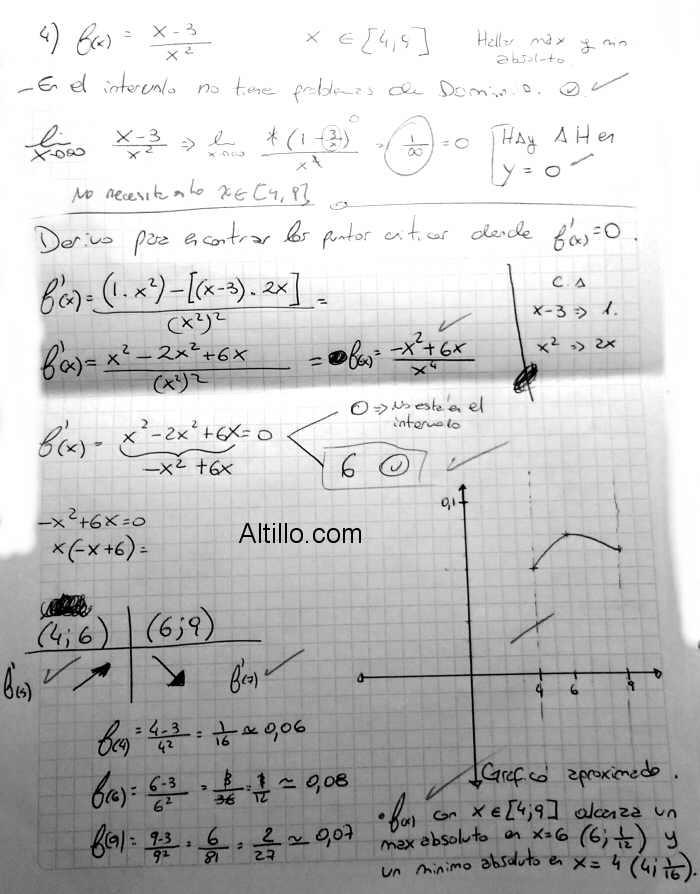 4) f(x) = x-3 / x² x ∈ [4,9] Hallar max y min
absoluto.
- En el intervalo no tiene problemas de Dominio.
lim x→∞ x-3 / x² ⇒ lim x→∞ x(1-3/x) / x² = 1/∞ = 0 Hay AH en
y = 0
No necesita x ∈ [4,9]
Derivo para encontrar los puntos criticos donde f'(x)=0.
f'(x) = (1·x²)-[(x-3)·2x] / (x²)² =
C.A
x-3 ⇒ 1.
x² ⇒ 2x
f'(x) = x²-2x²+6x / (x²)² = f(x) = -x²+6x / x⁴
f'(x) = x²-2x²+6x=0
-x²+6x
0 ⇒ No está en el
intervalo
6
-x²+6x=0
x(-x+6)=
Altillo.com
0,1
4 6 9
(4;6) | (6;9)
f'(5) f'(7)
f(4) = 4-3 / 4² = 1/16 ≃ 0,06
f(6) = 6-3 / 6² = 3/36 = 1/12 ≃ 0,08
f(9) = 9-3 / 9² = 6/81 = 2/27 ≃ 0,07
Grafico aproximado.
• f(x) con x ∈ [4;9] alcanza un
max absoluto en x=6 (6; 1/12) y
un minimo absoluto en x= 4 (4; 1/16).